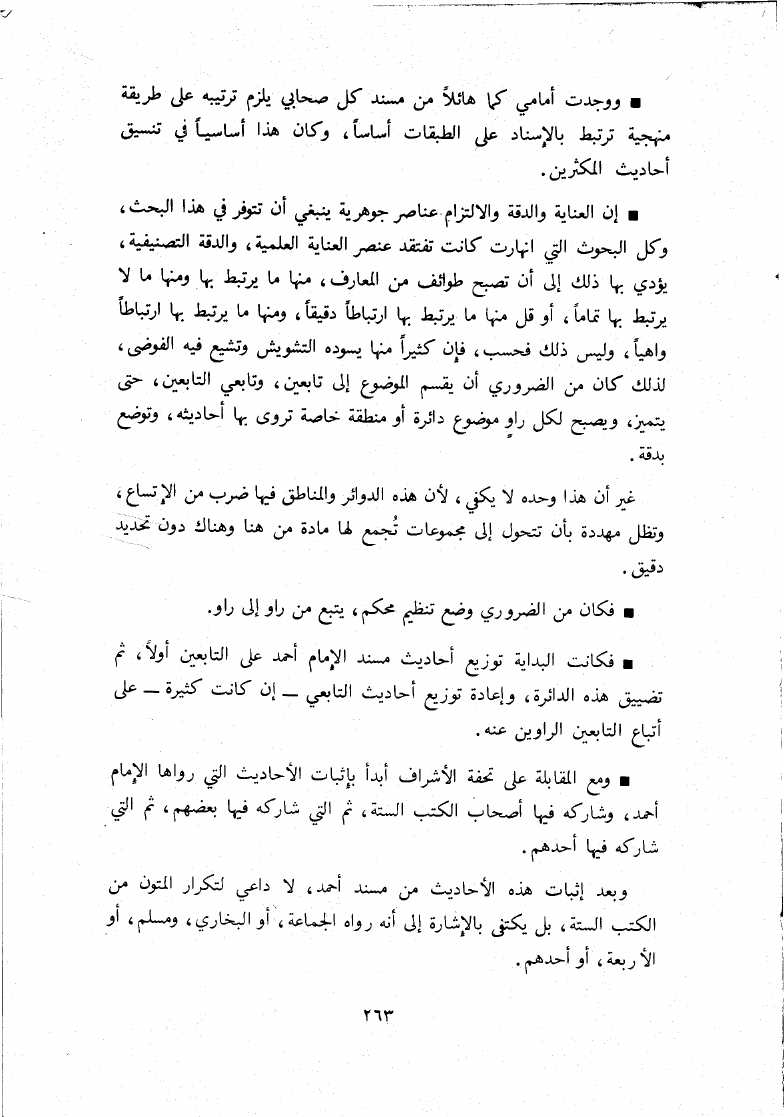 ■ ووجدت أمامي كما هائلاً من مسند كل صحابي يلزم ترتيبه على طريقة
منهجية ترتبط بالإسناد على الطبقات أساساً، وكان هذا أساسياً في تنسيق
أحاديث المكثرين.
■ إن العناية والدقة والالتزام عناصر جوهرية ينبغي أن تتوفر في هذا البحث،
وكل البحوث التي انهارت كانت تفتقد عنصر العناية العلمية، والدقة التصنيفية،
يؤدي بها ذلك إلى أن تصبح طوائف من المعارف، منها ما يرتبط بها ومنها ما لا
يرتبط بها تماماً، أو قل منها ما يرتبط بها ارتباطاً دقيقاً، ومنها ما يرتبط بها ارتباطاً
واهياً، وليس ذلك فحسب، فإن كثيراً منها يسوده التشويش وتشيع فيه الفوضى،
لذلك كان من الضروري أن يقسم الموضوع إلى تابعين، وتابعي التابعين، حتى
يتميز، ويصبح لكل راو موضوع دائرة أو منطقة خاصة تروى بها أحاديثه، وتوضع
بدقة.
غير أن هذا وحده لا يكفي، لأن هذه الدوائر والمناطق فيها ضرب من الإتساع،
وتظل مهددة بأن تتحول إلى مجموعات تُجمع لها مادة من هنا وهناك دون تحديد
دقيق.
■ فكان من الضروري وضع تنظيم محكم، يتبع من راو إلى راو.
■ فكانت البداية توزيع أحاديث مسند الإمام أحمد على التابعين أولاً، ثم
تضييق هذه الدائرة، وإعادة توزيع أحاديث التابعي — إن كانت كثيرة — على
أتباع التابعين الراوين عنه.
■ ومع المقابلة على تحفة الأشراف أبدأ بإثبات الأحاديث التي رواها الإمام
أحمد، وشاركه فيها أصحاب الكتب الستة، ثم التي شاركه فيها بعضهم، ثم التي
شاركه فيها أحدهم.
وبعد إثبات هذه الأحاديث من مسند أحمد، لا داعي لتكرار المتون من
الكتب الستة، بل يكتفى بالإشارة إلى أنه رواه الجماعة، أو البخاري، ومسلم، أو
الأربعة، أو أحدهم.
٢٦٣